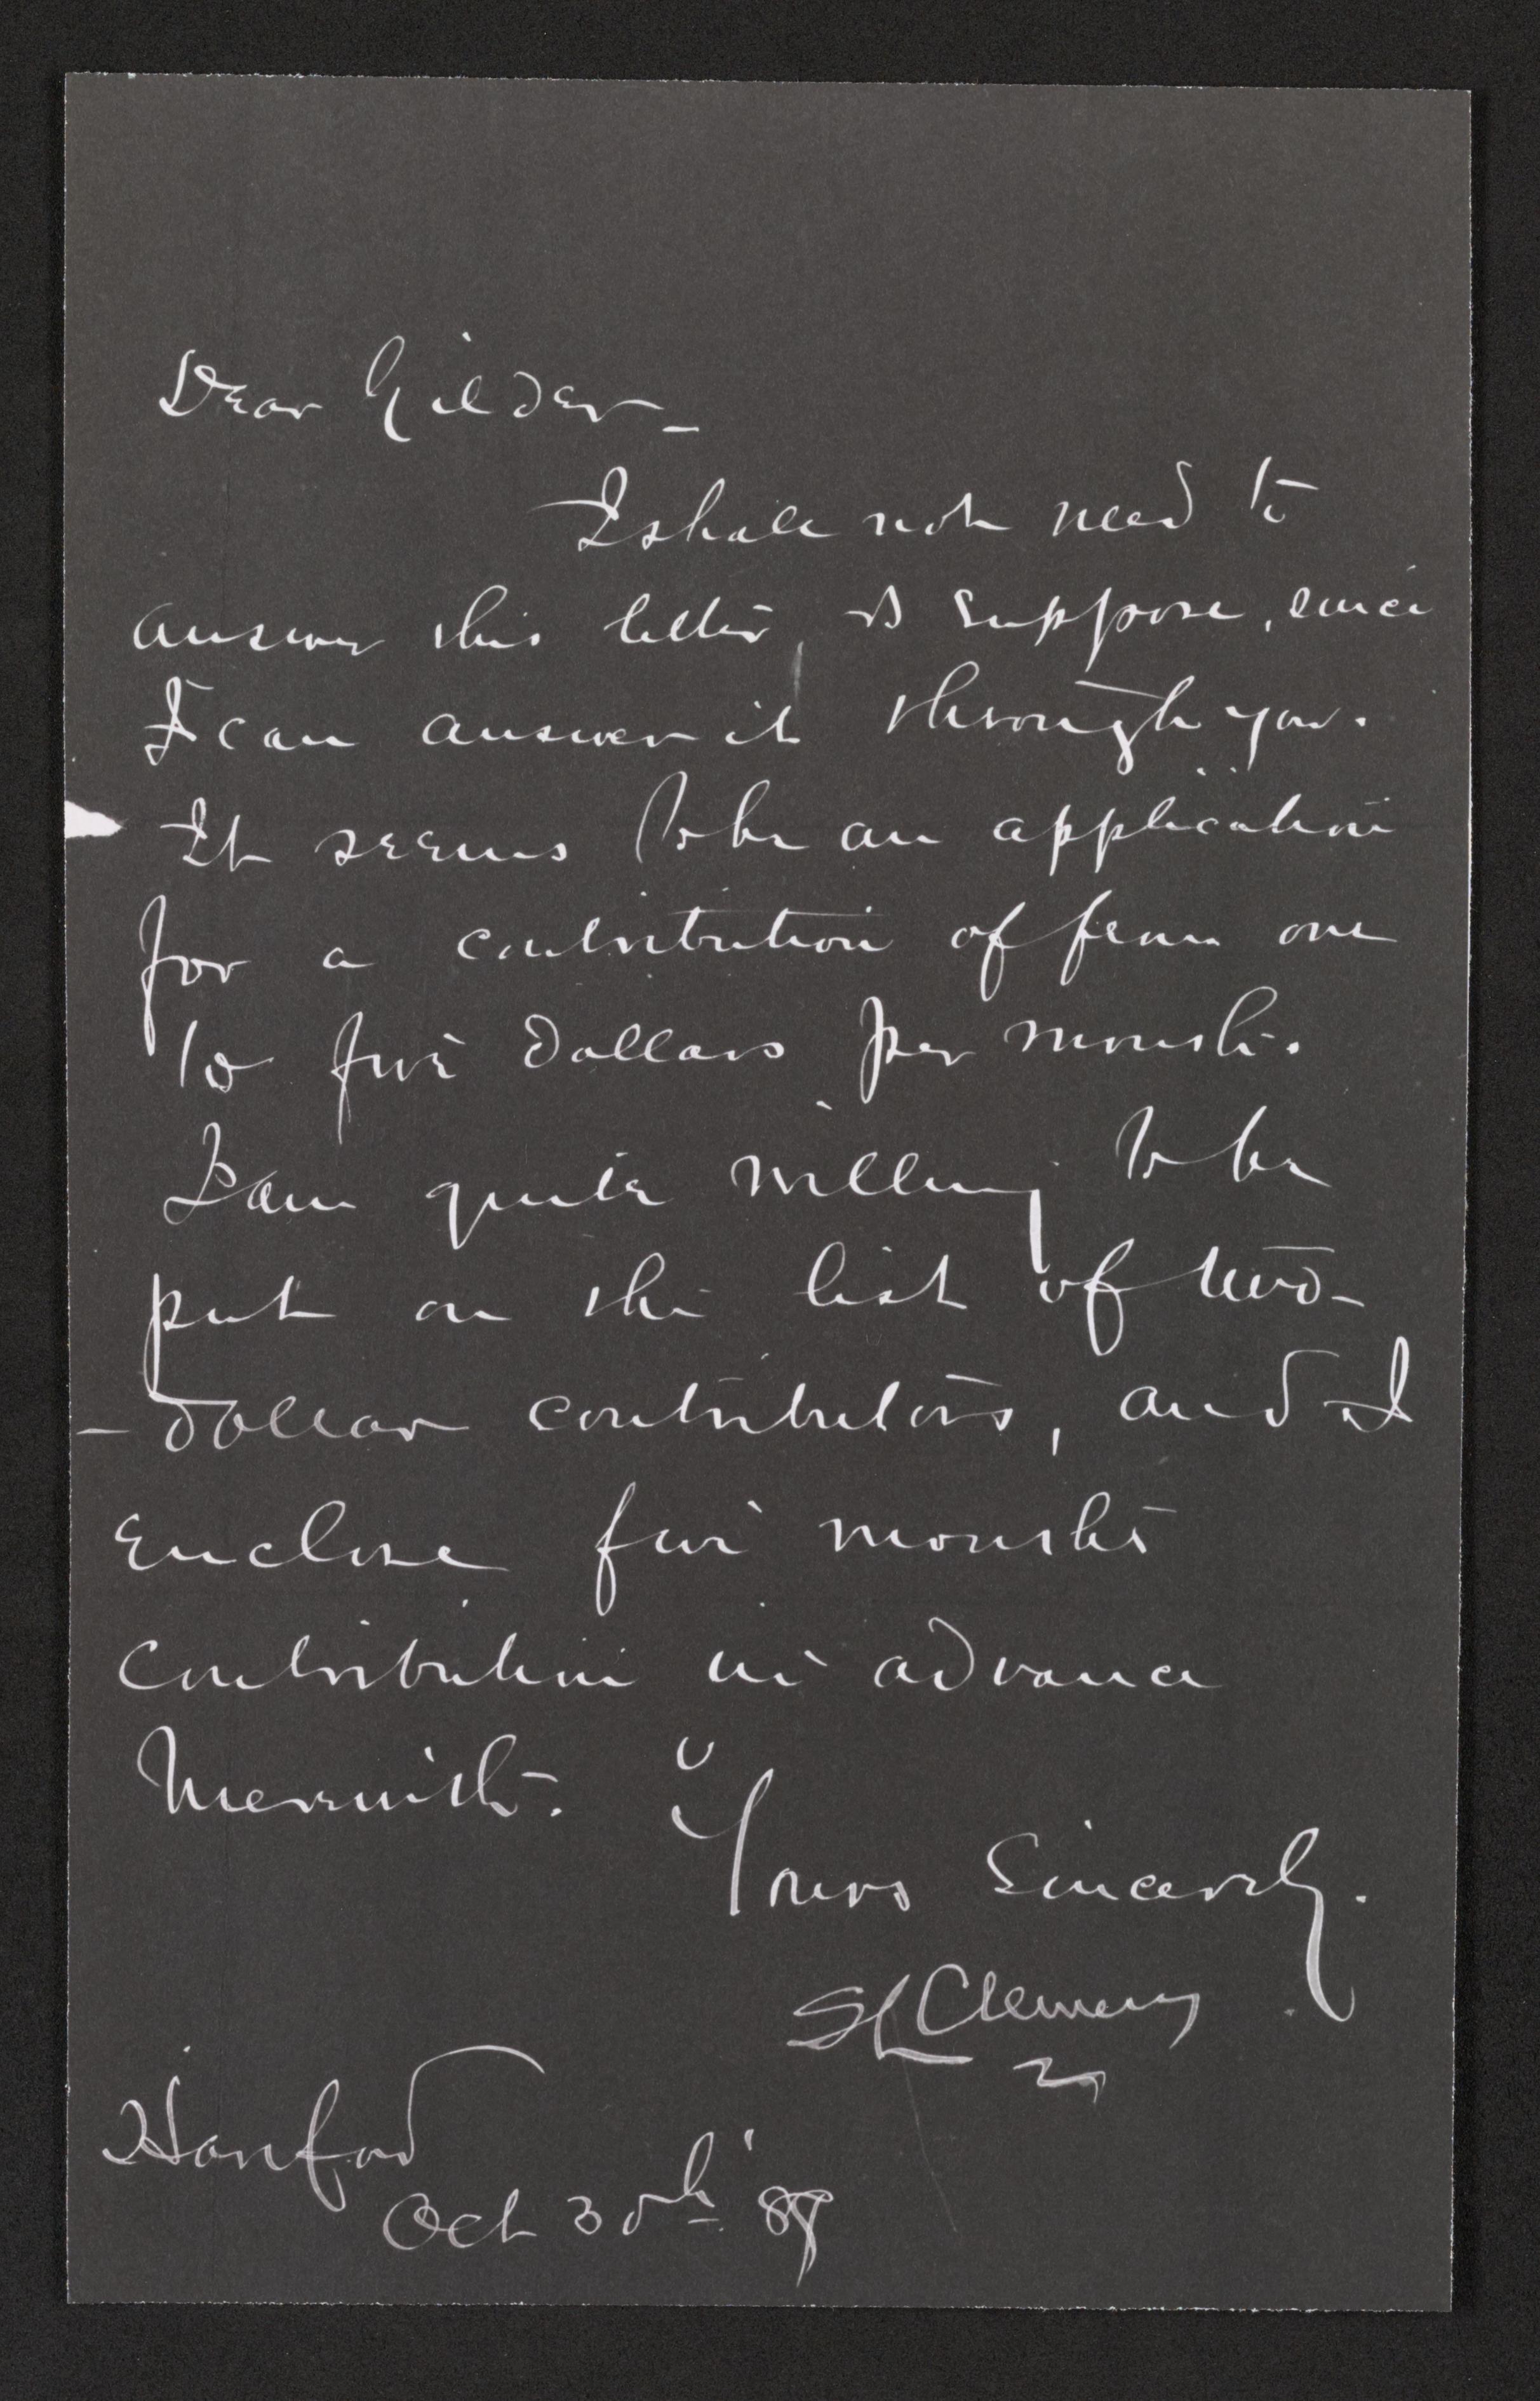 Dear Gilder—
I shall not need to
answer this letter, I suppose, since
I can answer it through you.
It seems to be an application
for a contribution of from one
to five dollars per month.
I am quite willing to be
put on the list of two-
-dollar contributors, and I
enclose five months
contribution in advance
herewith.
Yours Sincerely.
SL Clemens
Hartford
Oct 30th '89